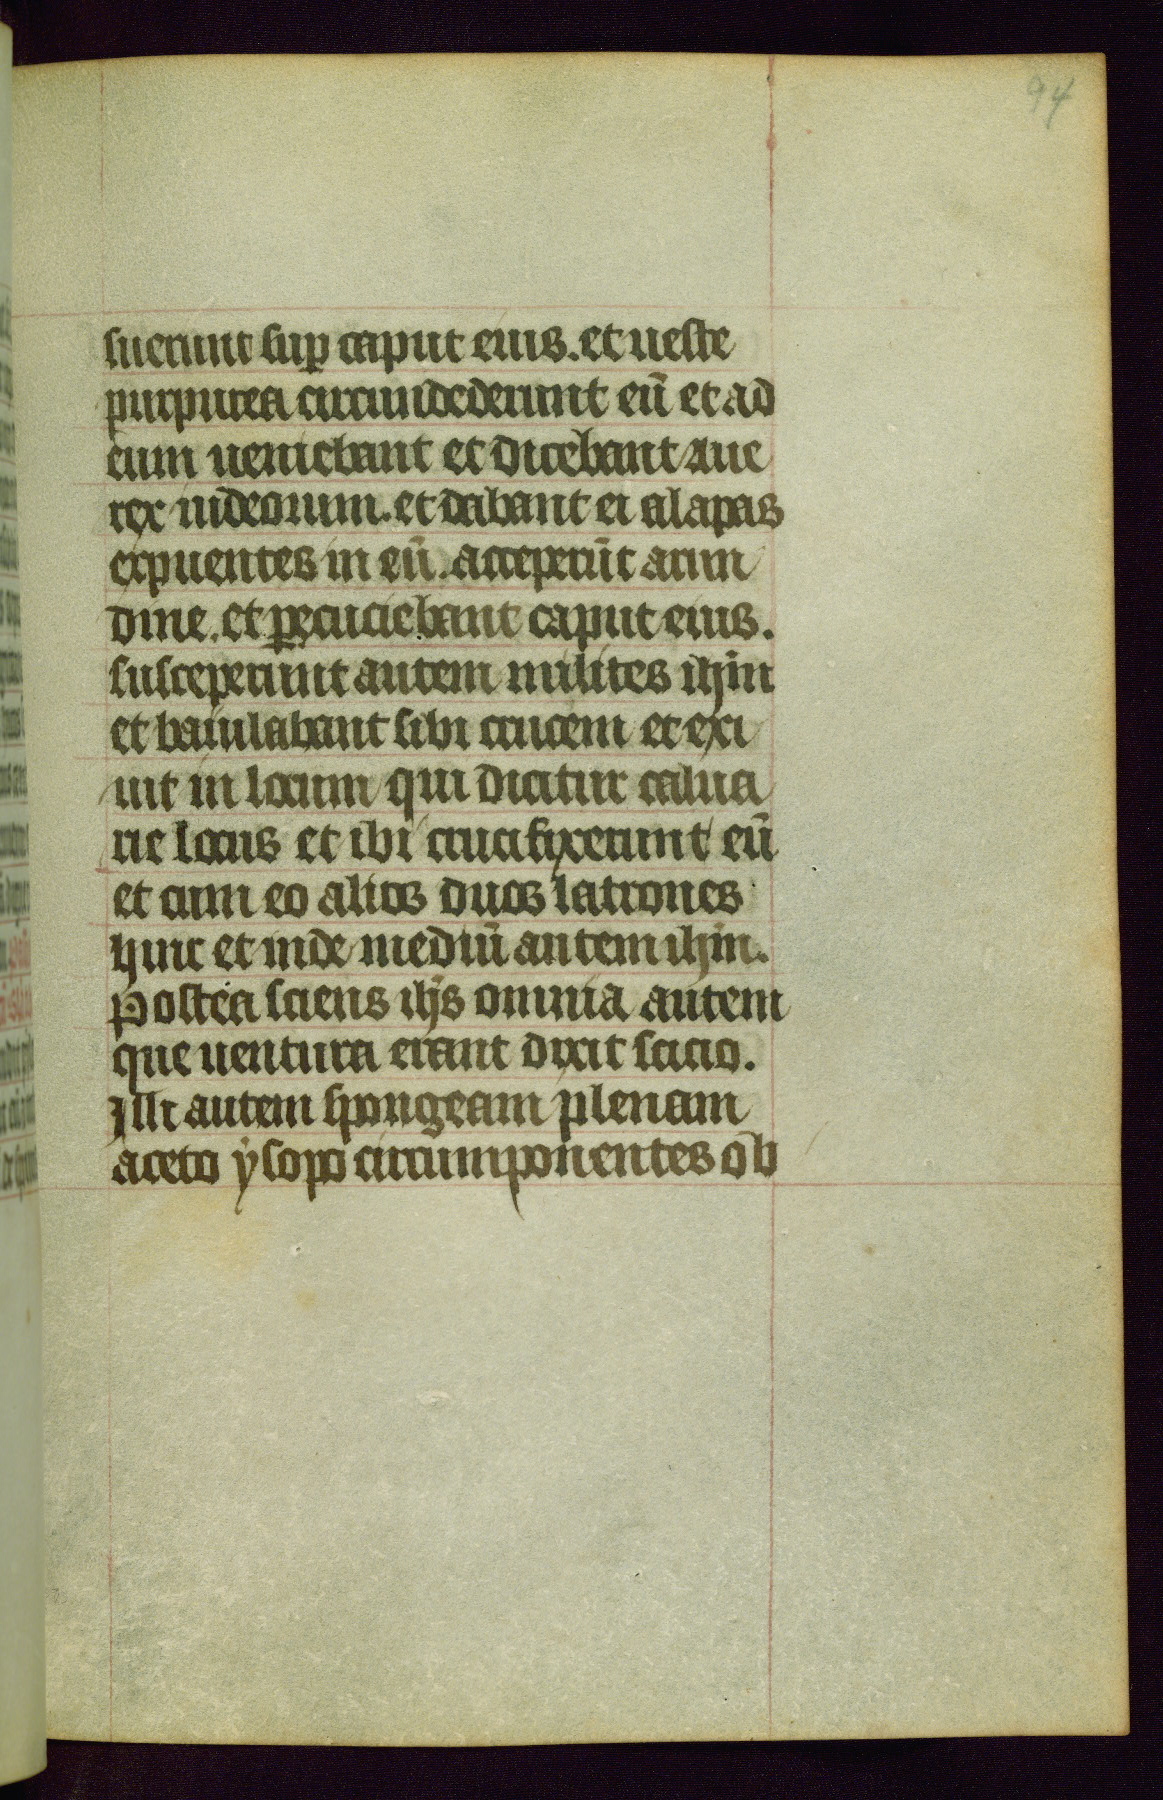 94
suerunt sup caput eius. et ueste
purpurea circumdederunt eū et ad
eum ueniebant et dicebant aue
rex iudeorum. et dabant ei alapas
expuentes in eū. acceperūt arun
dine. et percuciebant caput eius.
susceperunt autem milites ihm
et baiulabant sibi crucem et exi
uit in locum qui dicitur calua
rie locus et ibi crucifixerunt eū
et cum eo alios duos latrones
hinc et inde mediū autem ihm.
Postea sciens ihs omnia autem
que uentura erant dixit scicio.
Illi autem spongeam plenam
aceto ysopo circumponentes ob